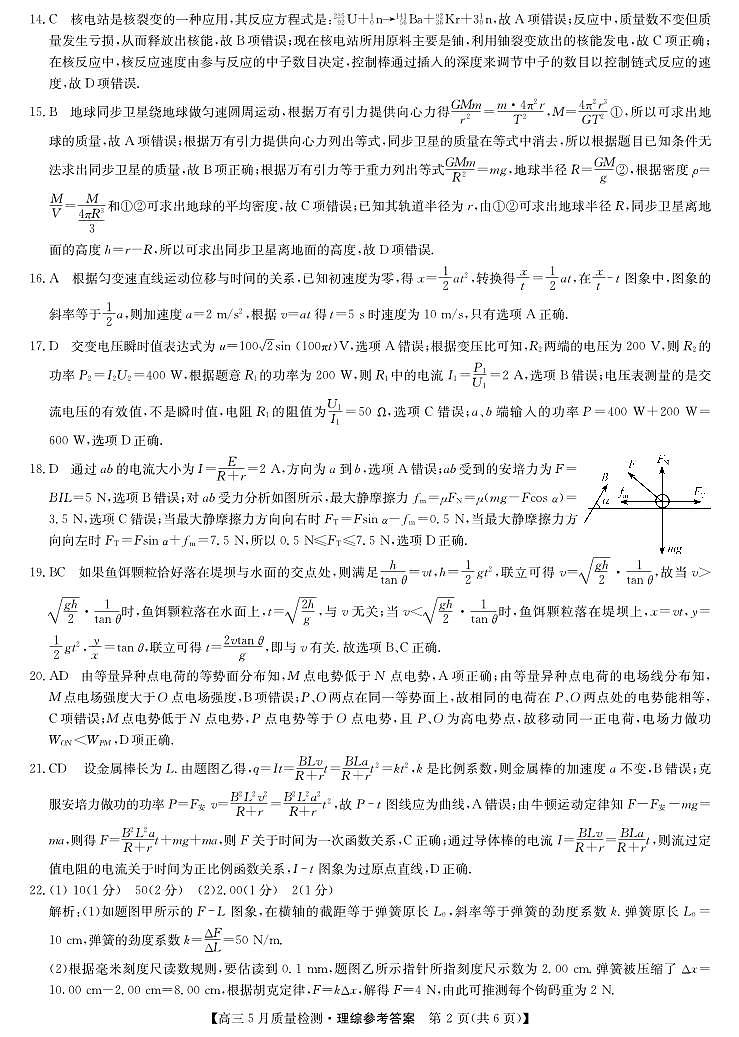 14. C 核电站是核裂变的一种应用,其反应方程式是:²³⁵₉₂U+¹₀n→¹⁴⁴₅₆Ba+⁸⁹₃₆Kr+3¹₀n,故 A 项错误;反应中,质量数不变但质
量发生亏损,从而释放出核能,故 B 项错误;现在核电站所用原料主要是铀,利用铀裂变放出的核能发电,故 C 项正确;
在核反应中,核反应速度由参与反应的中子数目决定,控制棒通过插入的深度来调节中子的数目以控制链式反应的速
度,故 D 项错误.
15. B 地球同步卫星绕地球做匀速圆周运动,根据万有引力提供向心力得GMm/r²=m·4π²r/T²,M=4π²r³/GT²①,所以可求出地
球的质量,故 A 项错误;根据万有引力提供向心力列出等式,同步卫星的质量在等式中消去,所以根据题目已知条件无
法求出同步卫星的质量,故 B 项正确;根据万有引力等于重力列出等式GMm/R²=mg,地球半径 R=GM/g②,根据密度 ρ=
M/V=M/(4πR³/3)和①②可求出地球的平均密度,故 C 项错误;已知其轨道半径为 r,由①②可求出地球半径 R,同步卫星离地
面的高度 h=r-R,所以可求出同步卫星离地面的高度,故 D 项错误.
16. A 根据匀变速直线运动位移与时间的关系,已知初速度为零,得 x=1/2at²,转换得x/t=1/2at,在x/t-t 图象中,图象的
斜率等于1/2a,则加速度 a=2 m/s²,根据 v=at 得 t=5 s 时速度为 10 m/s,只有选项 A 正确.
17. D 交变电压瞬时值表达式为 u=100√2sin (100πt)V,选项 A 错误;根据变压比可知,R₂两端的电压为 200 V,则 R₂的
功率 P₂=I₂U₂=400 W,根据题意 R₁的功率为 200 W,则 R₁中的电流 I₁=P₁/U₁=2 A,选项 B 错误;电压表测量的是交
流电压的有效值,不是瞬时值,电阻 R₁的阻值为U₁/I₁=50 Ω,选项 C 错误;a、b 端输入的功率 P=400 W+200 W=
600 W,选项 D 正确.
18. D 通过 ab 的电流大小为 I=E/(R+r)=2 A,方向为 a 到 b,选项 A 错误;ab 受到的安培力为 F=
BIL=5 N,选项 B 错误;对 ab 受力分析如图所示,最大静摩擦力 fₘ=μF_N=μ(mg-Fcos α)=
3.5 N,选项 C 错误;当最大静摩擦力方向向右时 F_T=Fsin α-fₘ=0.5 N,当最大静摩擦力方
向向左时 F_T=Fsin α+fₘ=7.5 N,所以 0.5 N≤F_T≤7.5 N,选项 D 正确.
B α F F_N fₘ F_T mg
19. BC 如果鱼饵颗粒恰好落在堤坝与水面的交点处,则满足h/tan θ=vt,h=1/2gt²,联立可得 v=√(gh/2)·1/tan θ,故当 v>
√(gh/2)·1/tan θ时,鱼饵颗粒落在水面上,t=√(2h/g),与 v 无关;当 v<√(gh/2)·1/tan θ时,鱼饵颗粒落在堤坝上,x=vt,y=
1/2gt²,y/x=tan θ,联立可得 t=2vtan θ/g,即与 v 有关.故选项 B、C 正确.
20. AD 由等量异种点电荷的等势面分布知,M 点电势低于 N 点电势,A 项正确;由等量异种点电荷的电场线分布知,
M 点电场强度大于 O 点电场强度,B 项错误;P、O 两点在同一等势面上,故相同的电荷在 P、O 两点处的电势能相等,
C 项错误;M 点电势低于 N 点电势,P 点电势等于 O 点电势,且 P、O 为高电势点,故移动同一正电荷,电场力做功
W_ON<W_PM,D 项正确.
21. CD 设金属棒长为 L.由题图乙得,q=It=BLv/(R+r)t=BLa/(R+r)t²=kt²,k 是比例系数,则金属棒的加速度 a 不变,B 错误;克
服安培力做功的功率 P=F安 v=B²L²v²/(R+r)=B²L²a²/(R+r)t²,故 P-t 图线应为曲线,A 错误;由牛顿运动定律知 F-F安-mg=
ma,则得 F=B²L²a/(R+r)t+mg+ma,则 F 关于时间为一次函数关系,C 正确;通过导体棒的电流 I=BLv/(R+r)=BLa/(R+r)t,则流过定
值电阻的电流关于时间为正比例函数关系,I-t 图象为过原点直线,D 正确.
22. (1) 10(1 分) 50(2 分) (2)2.00(1 分) 2(1 分)
解析:(1)如题图甲所示的 F-L 图象,在横轴的截距等于弹簧原长 L₀,斜率等于弹簧的劲度系数 k.弹簧原长 L₀=
10 cm,弹簧的劲度系数 k=ΔF/ΔL=50 N/m.
(2)根据毫米刻度尺读数规则,要估读到 0.1 mm,题图乙所示指针所指刻度尺示数为 2.00 cm.弹簧被压缩了 Δx=
10.00 cm-2.00 cm=8.00 cm,根据胡克定律,F=kΔx,解得 F=4 N,由此可推测每个钩码重为 2 N.
【高三 5 月质量检测·理综参考答案 第 2 页(共 6 页)】